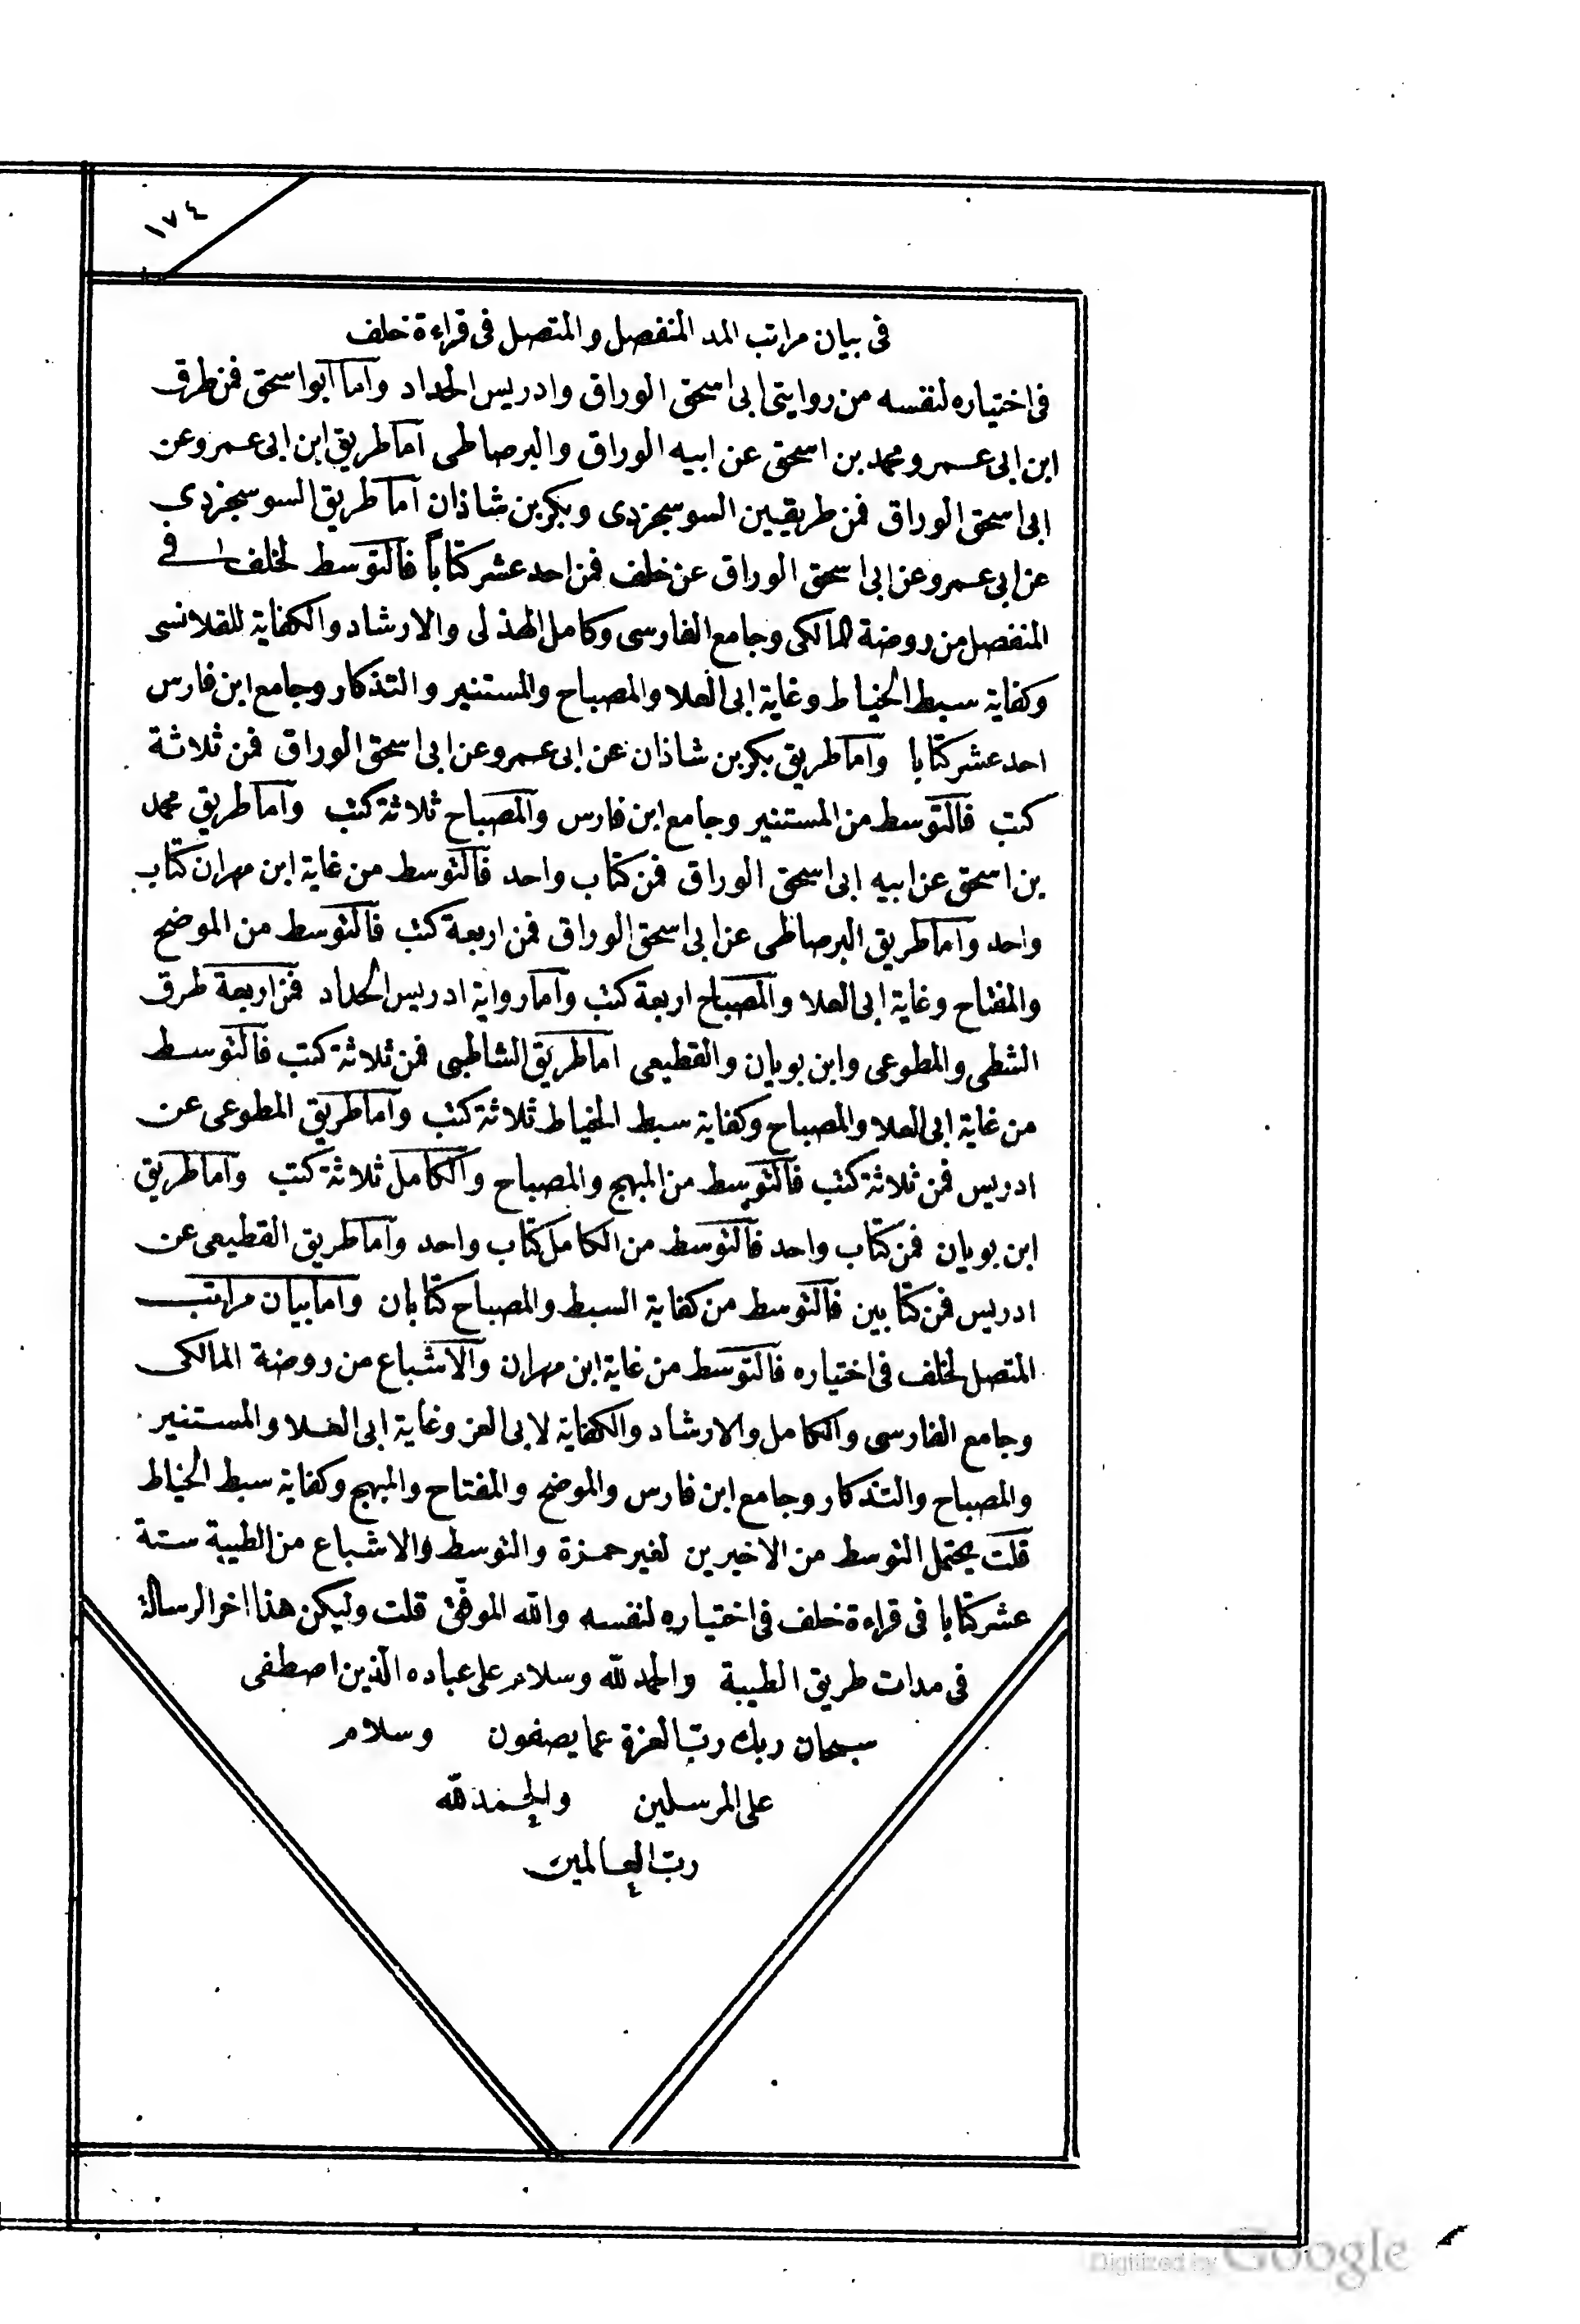 ١٧٤
فى بيان مراتب المد المنفصل والمتصل فى قراءة خلف
فى اختياره لنفسه من روايتى ابى اسحق الوراق وادريس الحداد واما ابو اسحق فمن طرق
ابن ابى عمرو ومحمد بن اسحق عن ابيه الوراق والبرصاطى اما طريق ابن ابى عمرو عن
ابى اسحق الوراق فمن طريقين السوسنجردى وبكر بن شاذان اما طريق السوسنجردى
عن ابى عمرو عن ابى اسحق الوراق عن خلف فمن احد عشر كتاباً فالتوسط لخلف فى
المنفصل من روضة المالكى وجامع الفارسى وكامل الهذلى والارشاد والكفاية للقلانسى
وكفاية سبط الخياط وغاية ابى العلا والمصباح والمستنير والتذكار وجامع ابن فارس
احد عشر كتابا واما طريق بكر بن شاذان عن ابى عمرو عن ابى اسحق الوراق فمن ثلاثة
كتب فالتوسط من المستنير وجامع ابن فارس والمصباح ثلاثة كتب واما طريق محمد
بن اسحق عن ابيه ابى اسحق الوراق فمن كتاب واحد فالتوسط من غاية ابن مهران كتاب
واحد واما طريق البرصاطى عن ابى اسحق الوراق فمن اربعة كتب فالتوسط من الموضح
والمفتاح وغاية ابى العلا والمصباح اربعة كتب واما رواية ادريس الحداد فمن اربعة طرق
الشطى والمطوعى وابن بويان والقطيعى اما طريق الشاطبى فمن ثلاثة كتب فالتوسط
من غاية ابى العلا والمصباح وكفاية سبط الخياط ثلاثة كتب واما طريق المطوعى عن
ادريس فمن ثلاثة كتب فالتوسط من المبهج والمصباح والكامل ثلاثة كتب واما طريق
ابن بويان فمن كتاب واحد فالتوسط من الكامل كتاب واحد واما طريق القطيعى عن
ادريس فمن كتابين فالتوسط من كفاية السبط والمصباح كتابان واما بيان مراتب
المتصل لخلف فى اختياره فالتوسط من غاية ابن مهران والاشباع من روضة المالكى
وجامع الفارسى والكامل والارشاد والكفاية لابى العز وغاية ابى العلا والمستنير
والمصباح والتذكار وجامع ابن فارس والموضح والمفتاح والمبهج وكفاية سبط الخياط
قلت يحتمل التوسط من الاخيرين لغير حمزة والتوسط والاشباع من الطيبة ستة
عشر كتابا فى قراءة خلف فى اختياره لنفسه والله الموفق قلت وليكن هذا اخر الرسالة
فى مدات طريق الطيبة والحمد لله وسلام على عباده الذين اصطفى
سبحان ربك رب العزة عما يصفون وسلام
على المرسلين والحمد لله
رب العالمين
Digitized by Google